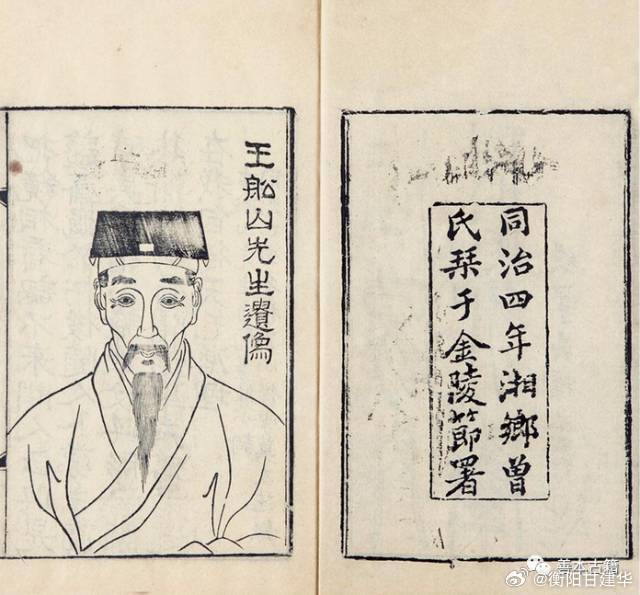 同治四年湘鄉曾
氏栞于金陵節署
王船山先生遺像
善本古籍
@衡阳甘建华